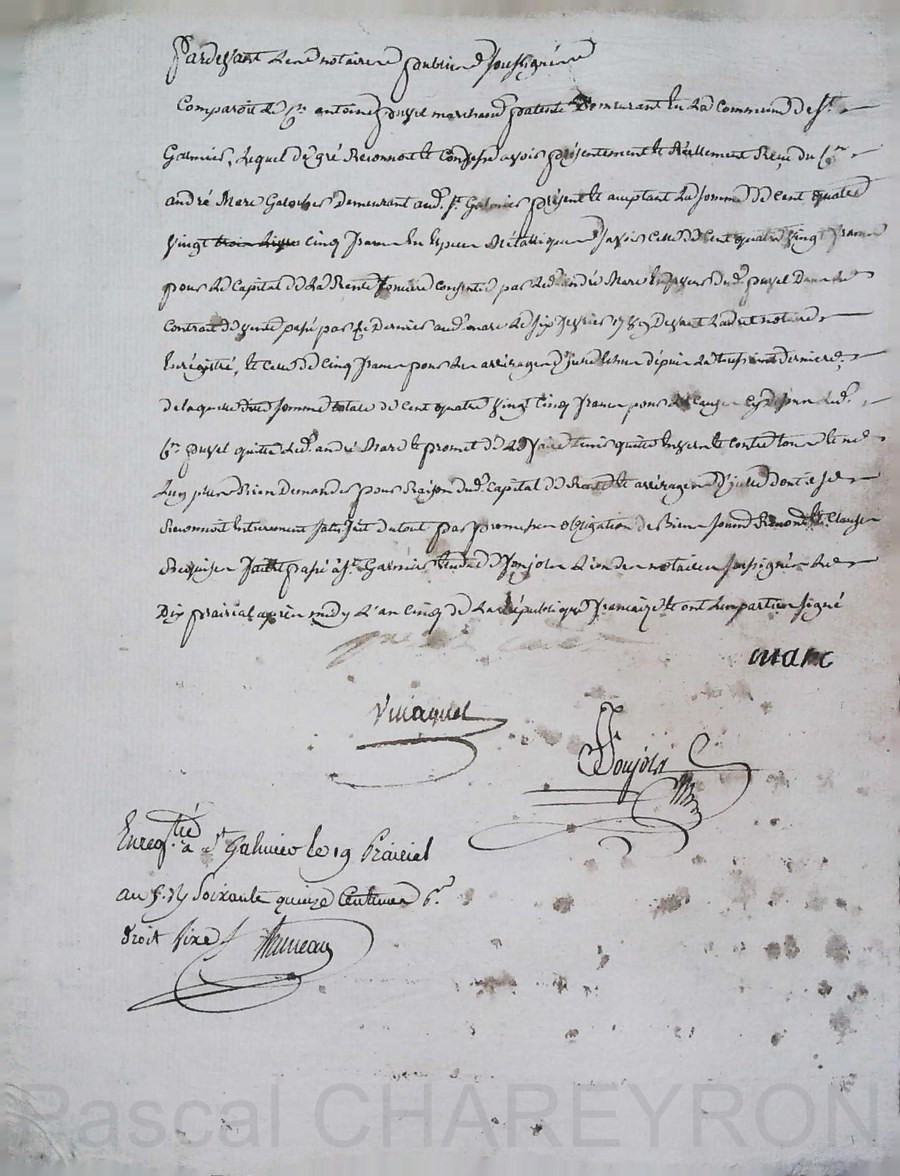 Pardevant les notaires publics soussignés
Comparoit le Cn. antoine marchand patenté Demeurant En La Commune de St.
Galmier, Lequel de gré Reconnoit et Confesse avoir présentement et Réellement Reçu du Cn.
andré Marc Demeurant aud. St. Galmier présent et acceptant La somme de Cent quatre
vingt cinq francs En Espèces Métalliques savoir Celle de Cent quatre vingt francs
pour Le Capital de La Rente foncière par led. andré Marc Envers dud.
Contrat de vente passé par ce Dernier aud. marc Le six fevrier 1789 Devant notaire
Enregistré, et Celle de Cinq francs pour Les arrérages d'icelle depuis La toussaint derniere,
de laquelle somme totale de Cent quatre vingt Cinq francs pour Les Causes led.
Cn. quitte led. andré Marc et promet de Le faire tenir quitte Envers et Contre tous et ne
Luy plus Rien Demander pour Raison dud. Capital de Rente et arrérages d'icelle dont il se
Reconnoit Entierement satisfait du tout par promesses obligation de Biens et Clauses
Requises fait et passé à St. Galmier L'un des notaires soussignés Le
Dix prairial après midy L'an Cinq de La République française et ont Les parties signé
marc
Enregtré à St Galmier le 19 Prairial
an 5. Rçu Soixante quinze Centimes pr.
droit fixe
Pascal CHAREYRON